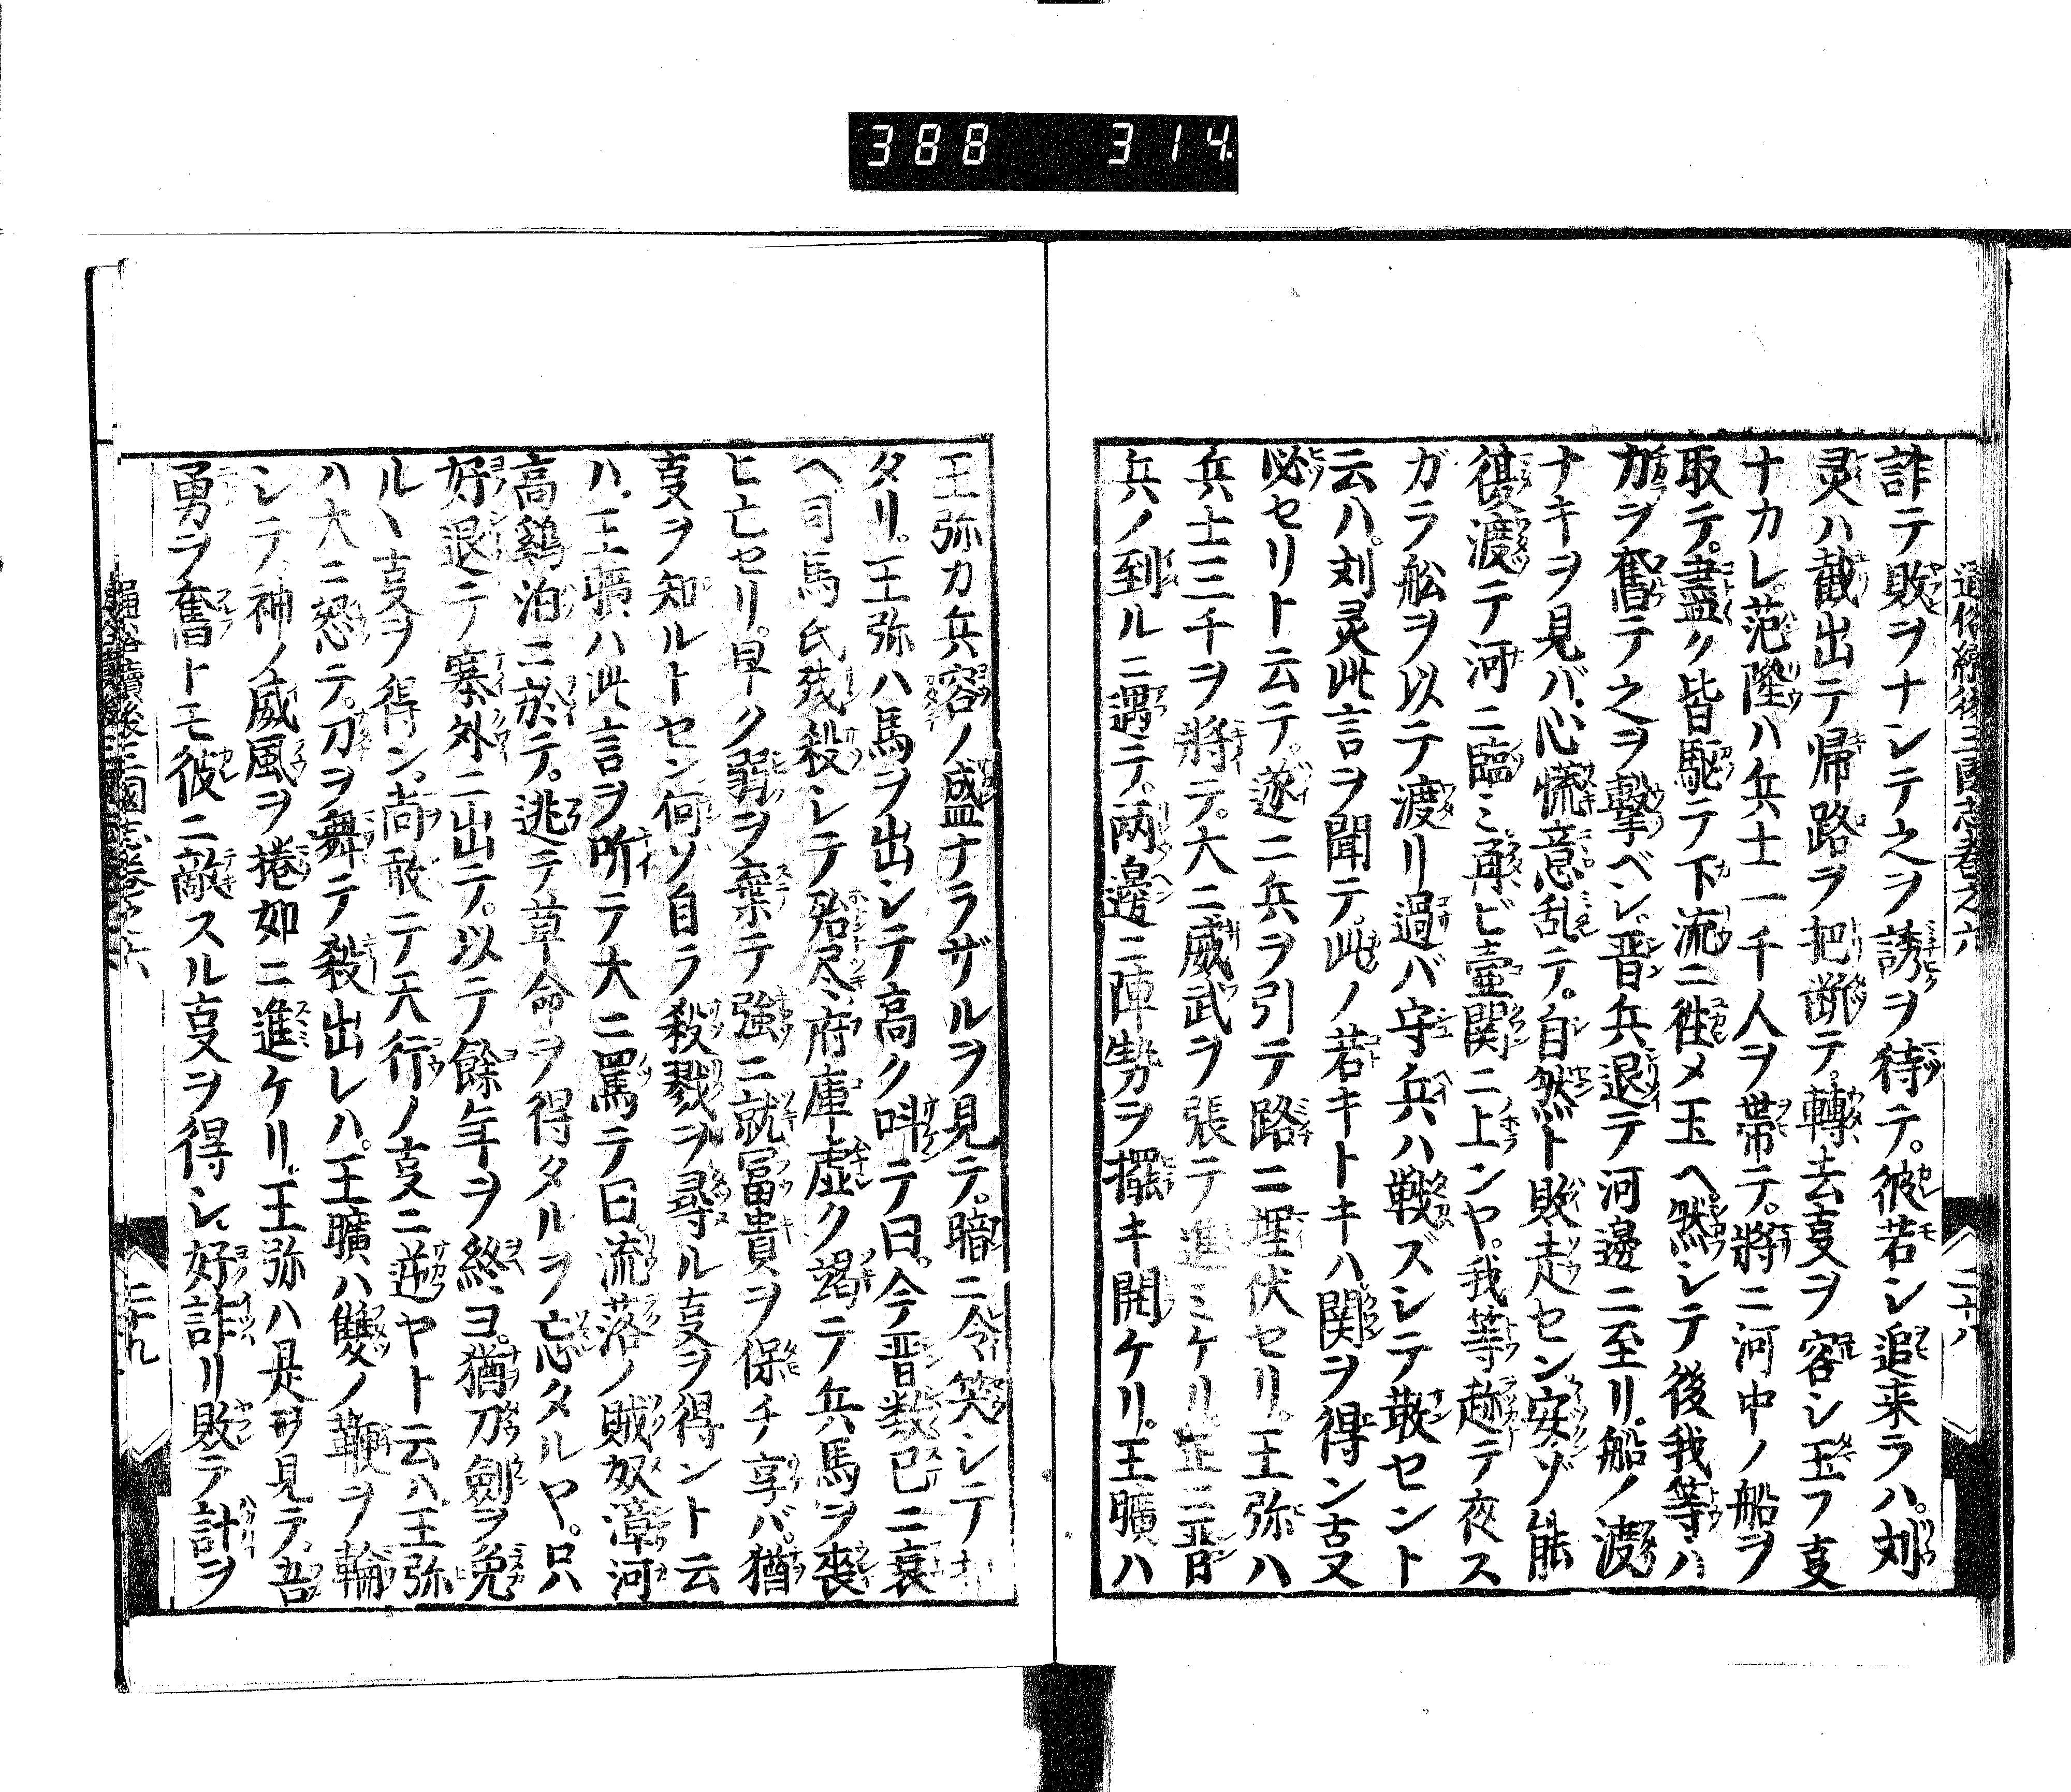 388 314
通俗續後三國志卷之六
二十八
詐テ敗ヲナシテ之ヲ誘ヲ待テ。彼若シ追来ラハ。刘
灵ハ截出テ帰路ヲ把断テ。轉去㕝ヲ容シ玉フ㕝
ナカレ。范隆ハ兵士一千人ヲ帯テ。將ニ河中ノ船ヲ
取テ。盡ク皆駆テ下流ニ徃メ玉ヘ然シテ後我等ハ
力ヲ奮テ之ヲ擊ベシ。晋兵退テ河邊ニ至リ。船ノ渡
ナキヲ見バ。心慌意乱テ。自然ト敗走セン安ゾ能
復渡テ河ニ臨ミ再ビ壷関ニ上ンヤ。我等趂テ夜ス
ガラ舩ヲ以テ渡リ過バ守兵ハ戦ズシテ散セント
云ハ。刘灵此言ヲ聞テ。此ノ若キトキハ関ヲ得ン㕝
必セリト云テ。遂ニ兵ヲ引テ路ニ埋伏セリ。王弥ハ
兵士三千ヲ將テ。大ニ威武ヲ張テ進ミケリ正ニ晋
兵ノ到ルニ遇テ。两邊ニ陣勢ヲ擺キ開ケリ。王曠ハ
王弥カ兵容ノ盛ナラザルヲ見テ。暗ニ令笑シテ
タリ。王弥ハ馬ヲ出シテ高ク呌テ曰。今晋数已ニ衰
ヘ司馬氏残殺シテ殆尽。府庫虚ク竭テ兵馬ヲ喪
ヒ亡セリ。早ク弱ヲ棄テ強ニ就冨貴ヲ保チ享バ。猶
㕝ヲ知ルトセン何ソ自ラ殺戮ヲ尋ル㕝ヲ得ント云
ハ。王曠ハ此言ヲ听テ大ニ罵テ曰。流落ノ賊奴漳河
高鷄泊ニ於テ。逃テ草命ヲ得タルヲ忘タルヤ。只
好退テ塞外ニ出テ。以テ餘年ヲ終ヨ。猶刀劍ヲ免
ルヽ㕝ヲ得ン。尚敢テ天行ノ㕝ニ逆ヤト云ハ王弥
ハ大ニ怒テ。刀ヲ舞テ殺出レハ。王曠ハ雙ノ鞭ヲ輪
シテ。神ノ威風ヲ捲如ニ進ケリ。王弥ハ是ヲ見テ。吾
勇ヲ奮トモ彼ニ敵スル㕝ヲ得シ。好詐リ敗ラ計ヲ
通俗續後三國志卷之六
二十九